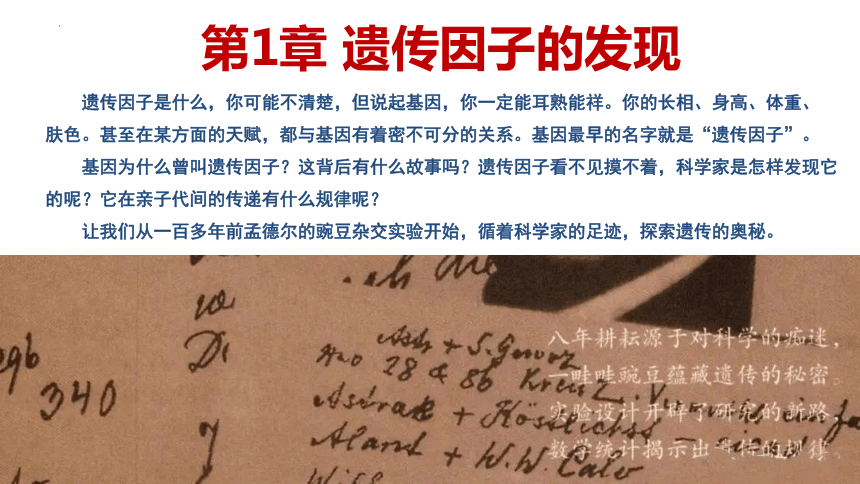 第1章 遗传因子的发现
遗传因子是什么，你可能不清楚，但说起基因，你一定能耳熟能祥。你的长相、身高、体重、
肤色。甚至在某方面的天赋，都与基因有着密不可分的关系。基因最早的名字就是“遗传因子”。
基因为什么曾叫遗传因子？这背后有什么故事吗？遗传因子看不见摸不着，科学家是怎样发现它
的呢？它在亲子代间的传递有什么规律呢？
让我们从一百多年前孟德尔的豌豆杂交实验开始，循着科学家的足迹，探索遗传的奥秘。
340
28 & 86
Aland + W.W. Calv
八年耕耘源于对科学的痴迷，
一畦畦豌豆蕴藏遗传的秘密。
实验设计开辟了研究的新路，
数学统计揭示出遗传的规律。